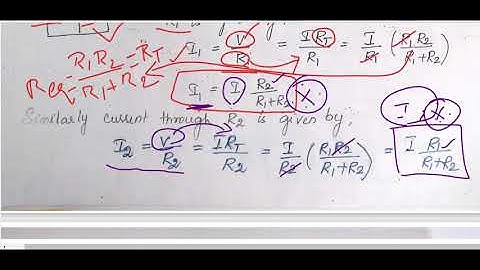 is given by
Req = R1R2 / R1+R2 = RT
I1 = V / R1 = I RT / R1 = I / R1 ( R1R2 / R1+R2 )
I1 = I R2 / R1+R2
Similarly current through R2 is given by
I2 = V / R2 = I RT / R2 = I / R2 ( R1R2 / R1+R2 ) = I R1 / R1+R2
I